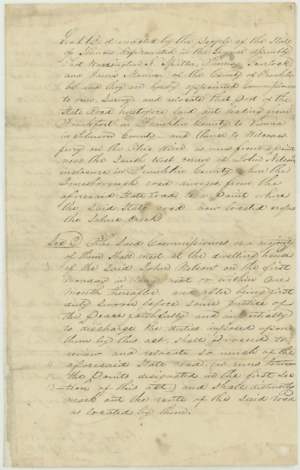 Be it enacted by the People of the State
of Illinois represented in the General Assembly
That Washington A. Spiller, Thomas
and James of the County of Franklin
be and they are hereby appointed Commissioners
to view Survey and relocate that part of the
State Road heretofore laid out leading from
Frankfort in Franklin County to Vienna
in Johnson County and thence to Wilcoxes
ferry on the Ohio River as runs from a point
near the South West corner of John Nelsons
inclosure in Franklin County where the
road diverges from the
aforesaid State road to a point where
the said State road now located crosses
the Saline Creek
Sec 2 The said Commissioners or a majority
of them shall meet at the dwelling house
of the said John Nelson on the first
Monday in May next or within one
month thereafter and after being first
duly sworn before some Justice of
the Peace faithfully and impartially
to discharge the duties imposed upon
them by this act, shall proceed to
review and relocate so much of the
aforesaid State road as runs between
the Points designated in the first sec
tion of this act, and shall distinctly
mark out the route of the said road
as located by them.